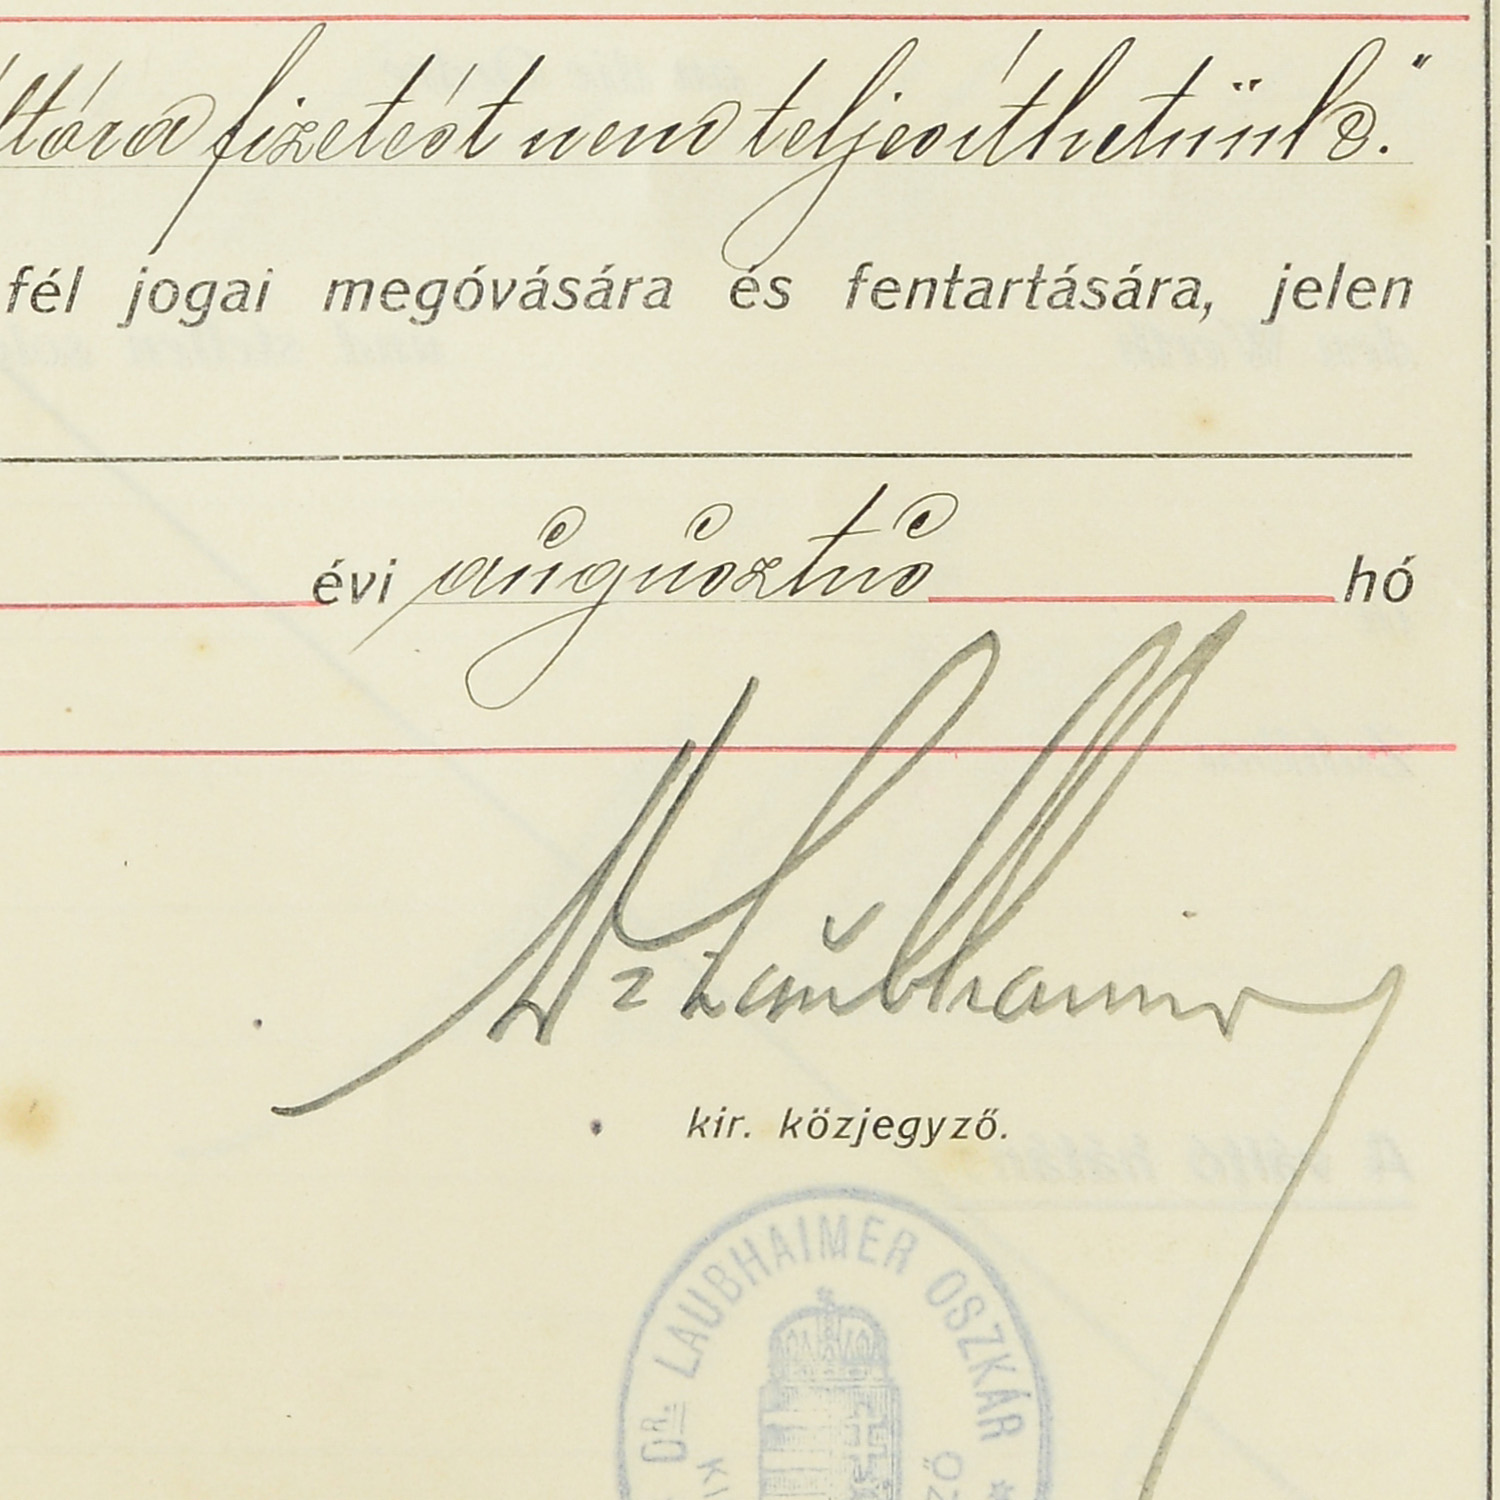 fizetést nem teljesíthetünk."
fél jogai megóvására és fentartására, jelen
évi augusztus hó
Dr Laubhaimer
kir. közjegyző.
DR. LAUBHAIMER OSZKÁR *